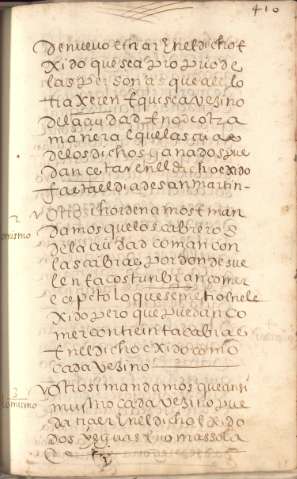 410
de nuevo entrar en el dicho e
xido que sea propio de
las personas que
que sea vezino
de la ciudad e no de otra
manera e que las
de los dichos ganados pue
dan estar en el dicho exido
fasta el dia de san martin
Otrosi hordenamos e man
damos que los cabreros
de la ciudad coman con
las cabras por donde sue
len e acostunbran comer
ecepto lo que en el e
xido pero que puedan co
mer con treinta cabras
en el dicho exido como
cada vezino
Otrosi mandamos que ansi
mismo cada vezino pue
da traer en el dicho exido
dos yeguas e no mas so la